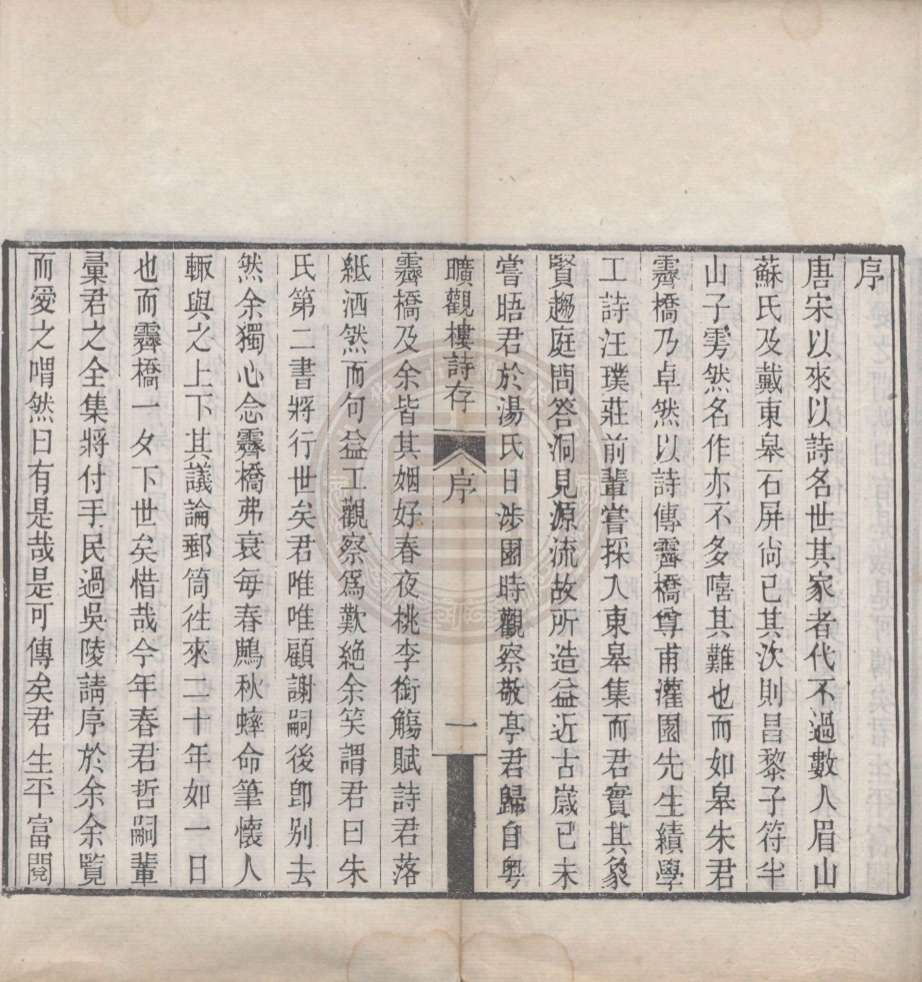 序
唐宋以來以詩名世其家者代不過數人眉山
蘇氏及戴東皋石屏尙已其次則昌黎子符半
山子雱然名作亦不多嘻其難也而如皋朱君
霽橋乃卓然以詩傳霽橋尊甫灌園先生績學
工詩汪璞莊前輩嘗採入東皋集而君實其象
賢趨庭問答洞見源流故所造益近古嵗已未
嘗晤君於湯氏日涉園時觀察敬亭君歸自粤
曠觀樓詩存 序 一
霽橋及余皆其姻好春夜桃李銜觴賦詩君落
紙洒然而句益工觀察爲歎絕余笑謂君曰朱
氏第二書將行世矣君唯唯顧謝嗣後卽别去
然余獨心念霽橋弗衰每春鷓秋蟀命筆懷人
輙與之上下其議論郵筒徃來二十年如一日
也而霽橋一夕下世矣惜哉今年春君哲嗣輩
彚君之全集將付手民過吳陵請序於余余覧
而愛之喟然曰有是哉是可傳矣君生平富閱